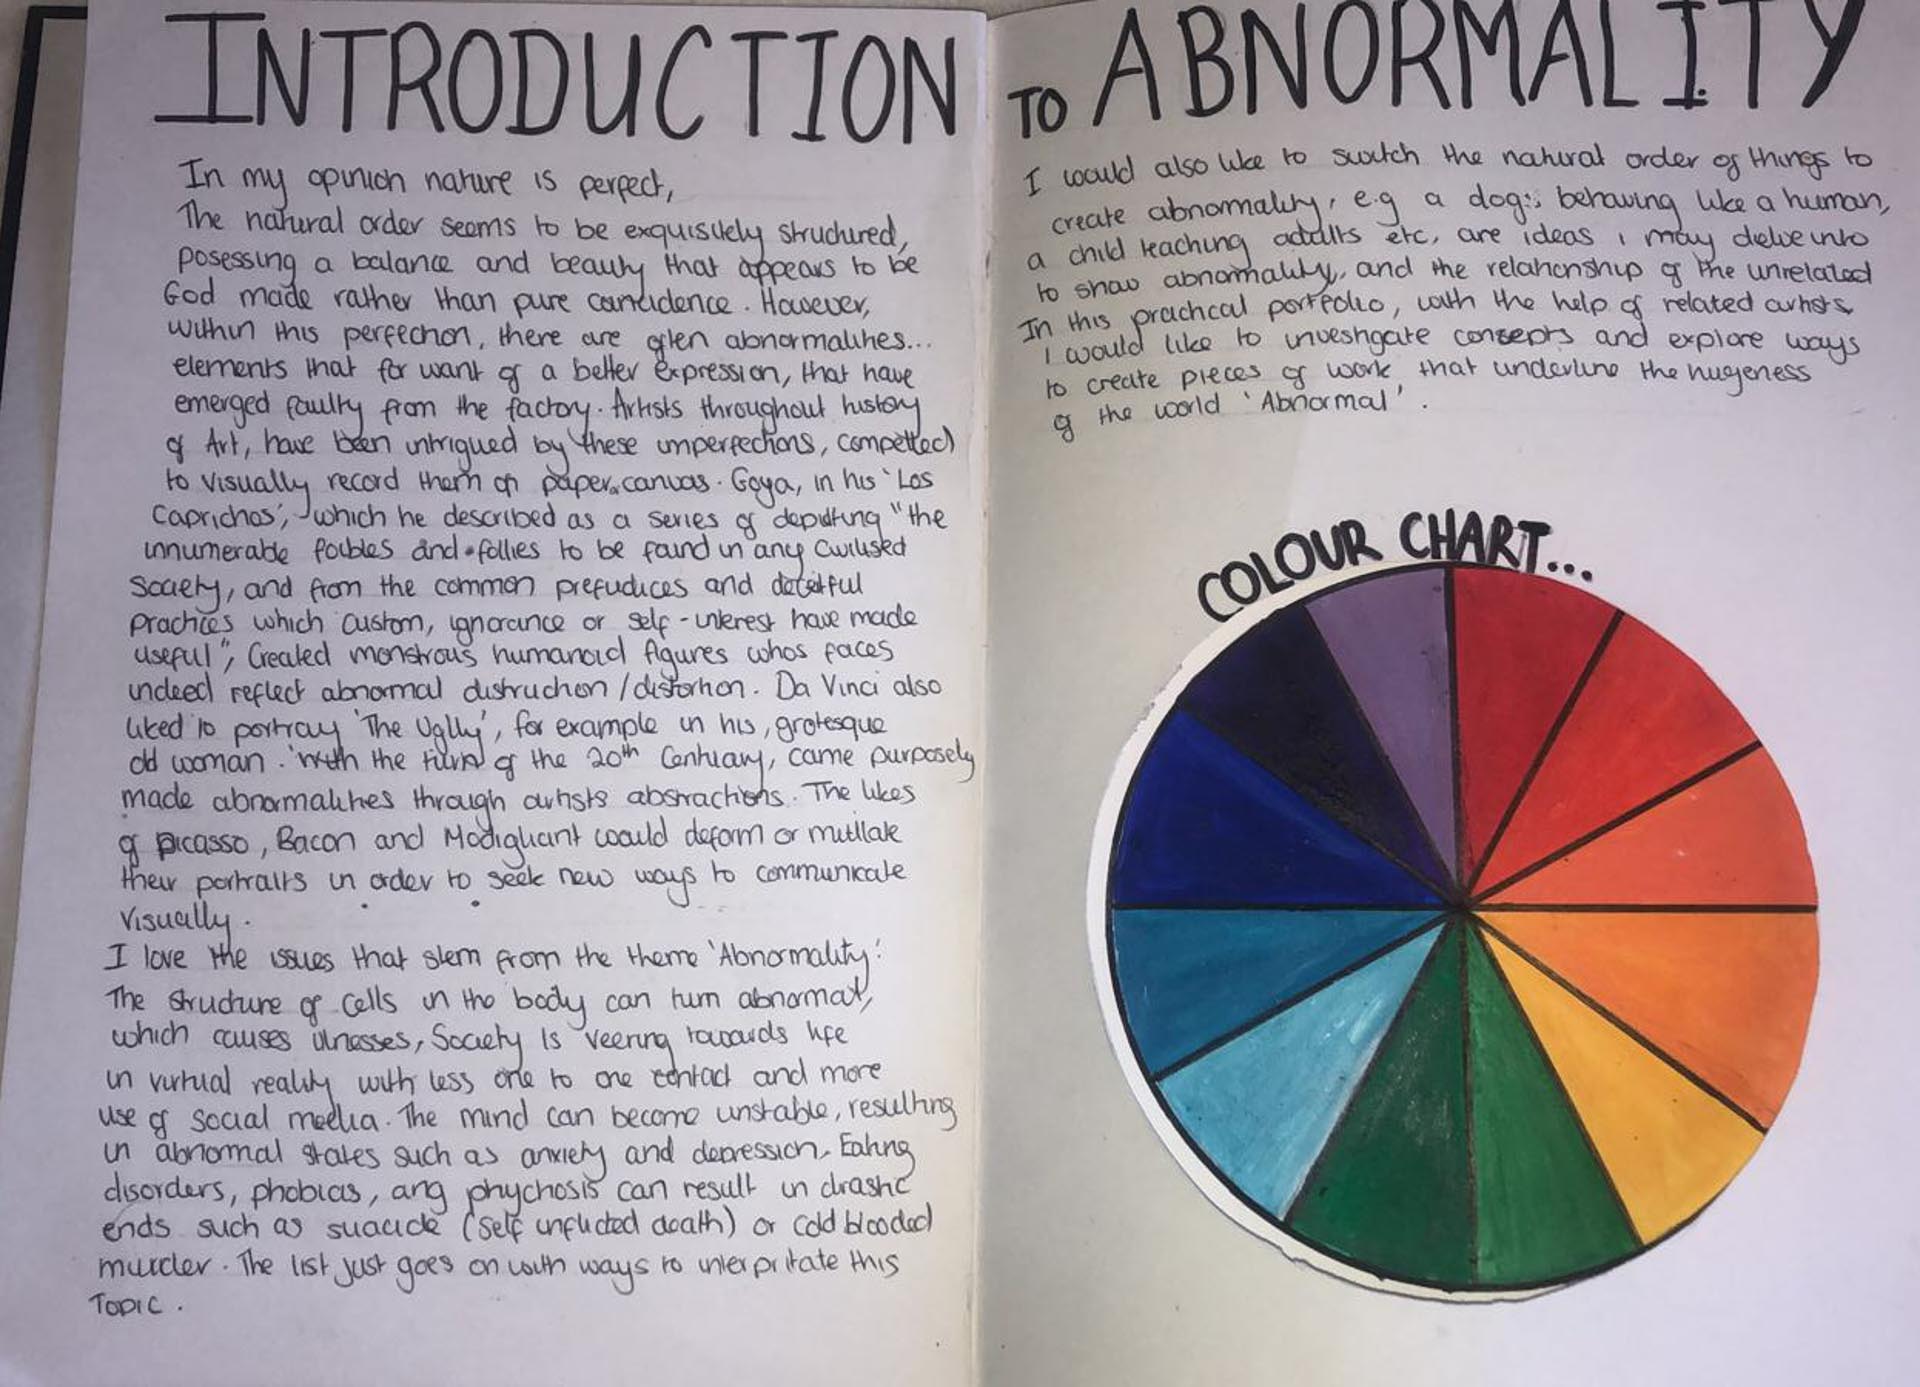 INTRODUCTION TO ABNORMALITY
In my opinion nature is perfect,
The natural order seems to be exquisitely structured,
posessing a balance and beauty that appears to be
God made rather than pure concidence. However,
within this perfection, there are often abnormalities...
elements that for want of a better expression, that have
emerged faulty from the factory. Artists throughout history
of Art, have been intrigued by these imperfections, compelled
to visually record them on paper, canvas. Goya, in his 'Los
Caprichos', which he described as a series of depicting "the
innumerable foibles and follies to be found in any civilised
society, and from the common prefudices and deceitful
practices which custom, ignorance or self-interest have made
useful", Created monstrous humanoid figures whos faces
indeed reflect abnormal distruction/distortion. Da Vinci also
liked to portray 'The Uglly', for example in his, grotesque
old woman. with the turn of the 20th Century, came purposely
made abnormalities through artists abstractions. The likes
of picasso, Bacon and Modigliani would deform or mutilate
their portraits in order to seek new ways to communicate
visually.
I love the issues that stem from the theme 'Abnormality'.
The structure of cells in the body can turn abnormal,
which causes illnesses, Society is veering towards life
in virtual reality with less one to one contact and more
use of social media. The mind can become unstable, resulting
in abnormal states such as anxiety and depression. Eating
disorders, phobias, and phychosis can result in drastic
ends such as suacide (self inflicted death) or cold blooded
murder. The list just goes on with ways to interpritate this
Topic.
I would also like to switch the natural order of things to
create abnormality, e.g a dog: behaving like a human,
a child teaching adults etc, are ideas i may delve into
to show abnormality, and the relationship of the unrelated
In this practical portfolio, with the help of related artists,
I would like to investigate concepts and explore ways
to create pieces of work that underline the hugeness
of the world 'Abnormal'.
COLOUR CHART...